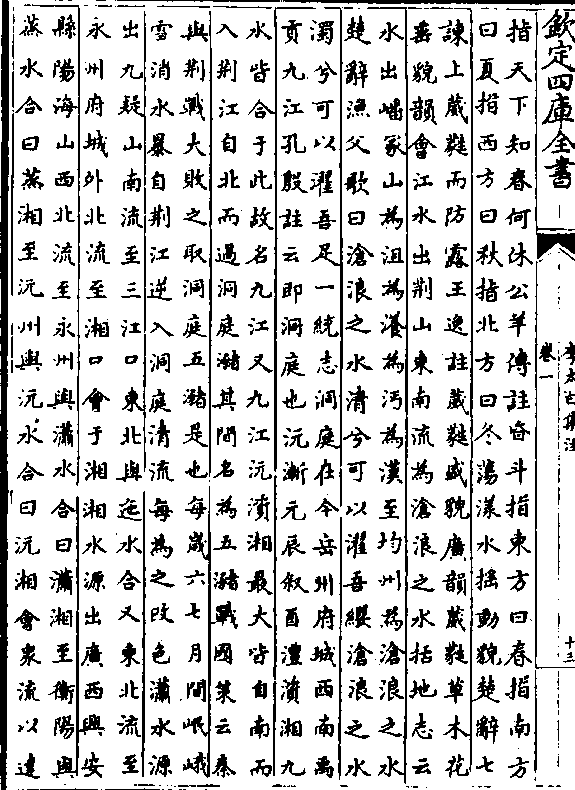 欽定四庫全書
李太白集注
卷一
十三
指天下知春何休公羊傳註㫖斗指東方曰春指南方
曰夏指西方曰秋指北方曰冬蕩漾水揺動貌楚辭七
諫上葳蕤而防露王逸註葳蕤盛貌廣韻葳蕤草木花
垂貌韻會江水出荆山東南流為滄浪之水括地志云
水出嶓冢山為沮為漾為沔為漢至均州為滄浪之水
楚辭漁父歌曰滄浪之水清兮可以濯吾纓滄浪之水
濁兮可以濯吾足一統志洞庭在今岳州府城西南禹
貢九江孔殷註云即洞庭也沅漸元辰叙酉澧資湘九
水皆合于此故名九江又九江沅濆湘最大皆自南而
入荆江自北而過洞庭瀦其間名為五瀦戰國策云秦
與荆戰大敗之取洞庭五瀦是也每歳六七月間岷峨
雪消水暴自荆江逆入洞庭清流每為之改色瀟水源
出九疑山南流至三江口東北與迤水合又東北流至
永州府城外北流至湘口會于湘湘水源出廣西興安
縣陽海山西北流至永州與瀟水合曰瀟湘至衡陽與
蒸水合曰蒸湘至沅州與沅水合曰沅湘會衆流以達